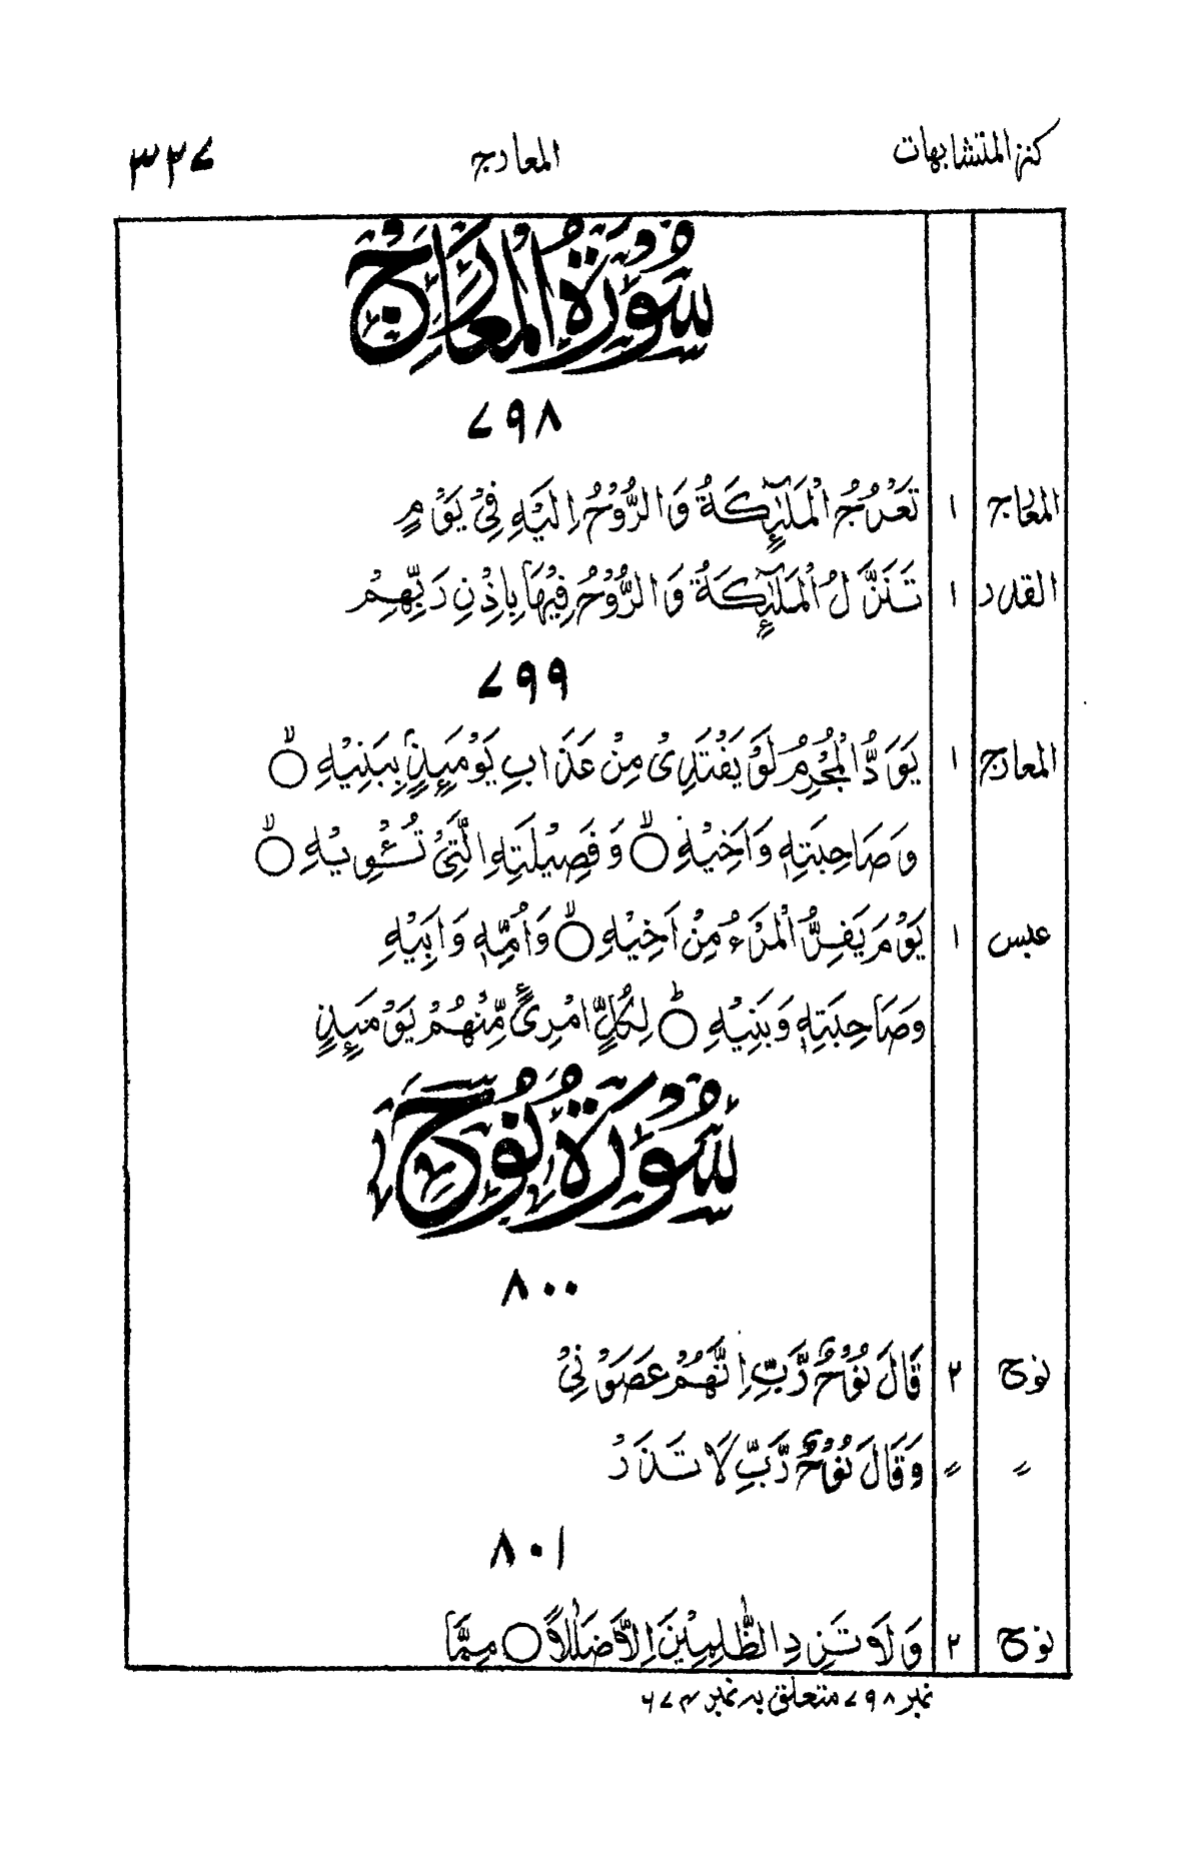 كنز المتشابهات المعارج ۳۲۷
سُوْرَةُ الْمَعَارِجِ
۷۹۸
المعارج ۱ تَعْرُجُ الْمَلٰٓئِكَةُ وَالرُّوْحُ اِلَيْهِ فِيْ يَوْمٍ
القدر ۱ تَنَزَّلُ الْمَلٰٓئِكَةُ وَالرُّوْحُ فِيْهَا بِاِذْنِ رَبِّهِمْ
۷۹۹
المعارج ۱ يَوَدُّ الْمُجْرِمُ لَوْ يَفْتَدِىْ مِنْ عَذَابِ يَوْمَئِذٍۭ بِبَنِيْهِ ۙ
وَصَاحِبَتِهٖ وَاَخِيْهِ ۙ وَفَصِيْلَتِهِ الَّتِىْ تُـــْٔوِيْهِ ۙ
عبس ۱ يَوْمَ يَفِرُّ الْمَرْءُ مِنْ اَخِيْهِ ۙ وَاُمِّهٖ وَاَبِيْهِ
وَصَاحِبَتِهٖ وَبَنِيْهِ ؕ لِكُلِّ امْرِئٍ مِّنْهُمْ يَوْمَئِذٍ
سُوْرَةُ نُوْحٍ
۸۰۰
نوح ۲ قَالَ نُوْحٌ رَّبِّ اِنَّهُمْ عَصَوْنِيْ
〃 〃 وَقَالَ نُوْحٌ رَّبِّ لَا تَذَرْ
۸۰۱
نوح ۲ وَلَا تَزِدِ الظّٰلِمِيْنَ اِلَّا ضَلٰلًا ○ مِمَّا
نمبر ۷۹۸ متعلق بہ نمبر ۶۷۴